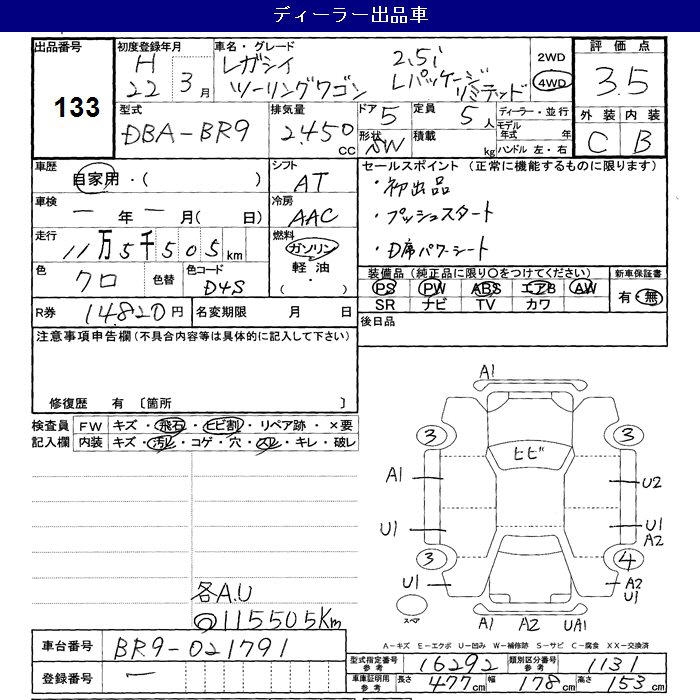 ディーラー出品車
出品番号
133
初度登録年月
H
22 3月
車名・グレード
レガシィ 2.5i
ツーリングワゴン Lパッケージ
リミテッド
2WD
4WD
評価点
3.5
外装 内装
C B
型式
DBA-BR9
排気量
2.450
CC
ドア 5
形状 SW
定員
5人
積載
kg
ディーラー・並行
モデル
年式 年
ハンドル 左・右
車歴
自家用・( )
シフト
AT
車検
ー年ー月( 日)
冷房
AAC
走行
11万5千505km
燃料
ガソリン
軽油
( ・ )
色
クロ
色替
色コード
D4S
R券
14820円
名変期限 月 日
セールスポイント (正常に機能するものに限ります)
・初出品
・プッシュスタート
・D席パワーシート
装備品(純正品に限り○をつけてください)
PS PW ABS エアB AW
SR ナビ TV カワ
新車保証書
有・無
後日品
注意事項申告欄(不具合内容等は具体的に記入して下さい)
修復歴 有 〔箇所 〕
検査員
記入欄
FW キズ・飛石・ヒビ割・リペア跡・×要
内装 キズ・汚レ・コゲ・穴・スレ・キレ・破レ
各A.U
◎115505Km
A1
3 3
ヒビ
A1 U2
U1 U1
A2
3 4
U1 A2
U1
スペア
A1 A2 UA1
A-キズ E-エクボ U-凹み W-補修跡 S-サビ C-腐食 XX-交換済
車台番号
BR9-021791
登録番号
ー
型式指定番号
参考
16292
類別区分番号
参考
1131
車庫証明用
参考
長さ 477cm
幅 178cm
高さ 153cm